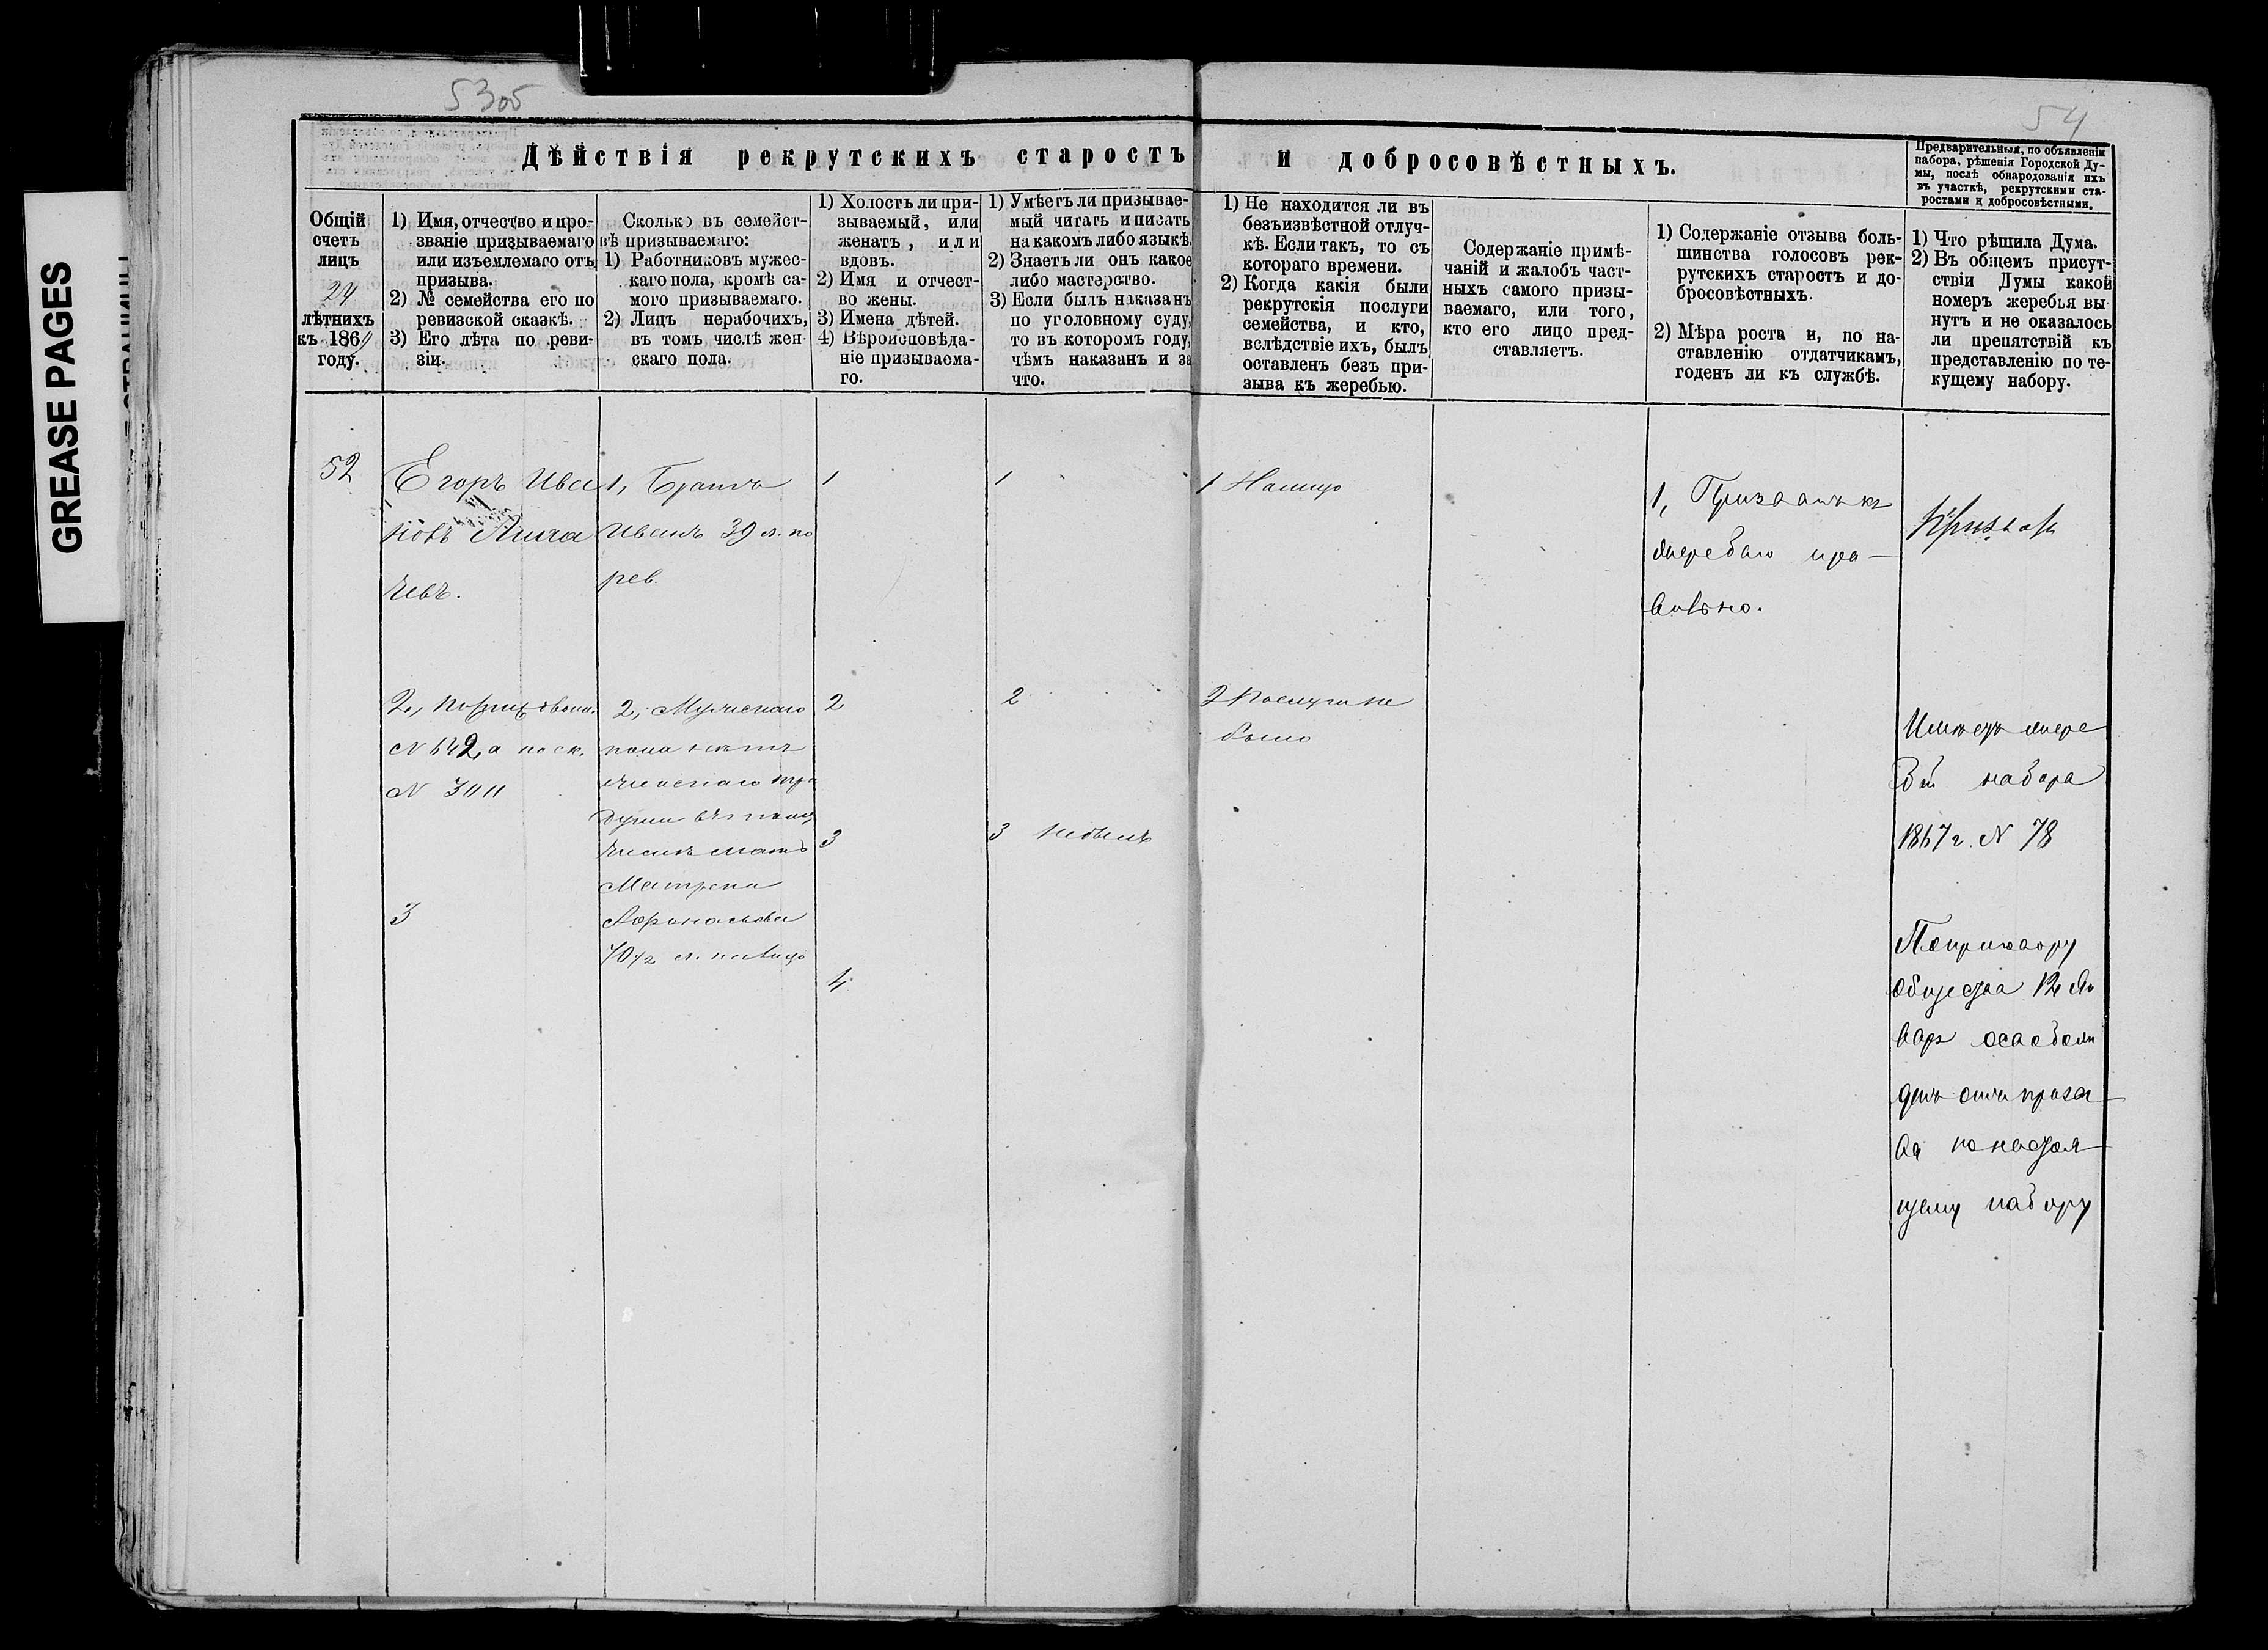 GREASE PAGES
53об
54
Дѣйствія рекрутскихъ старостъ и добросовѣстныхъ.
Предварительныя, по объявленіи
набора, рѣшенія Городской Ду-
мы, послѣ обнародованія ихъ
въ участкѣ, рекрутскими ста-
ростами и добросовѣстными.
Общій
счетъ
лицъ
24
лѣтнихъ
къ 1869
году.
1) Имя, отчество и про-
званіе призываемаго
или изъемлемаго отъ
призыва.
2) № семейства его по
ревизской сказкѣ.
3) Его лѣта по реви-
зіи.
Сколько въ семейст-
вѣ призываемаго:
1) Работниковъ мужес-
каго пола, кромѣ са-
мого призываемаго.
2) Лицъ нерабочихъ,
въ томъ числѣ жен-
скаго пола.
1) Холостъ ли при-
зываемый, или
женатъ, или
вдовъ.
2) Имя и отчест-
во жены.
3) Имена дѣтей.
4) Вѣроисповѣда-
ніе призываема-
го.
1) Умѣетъ ли призывае-
мый читать и писать
на какомъ либо языкѣ.
2) Знаетъ ли онъ какое
либо мастерство.
3) Если былъ наказанъ
по уголовному суду,
то въ которомъ году,
чѣмъ наказанъ и за
что.
1) Не находится ли въ
безъизвѣстной отлуч-
кѣ. Если такъ, то съ
котораго времени.
2) Когда какія были
рекрутскія послуги
семейства, и кто,
вслѣдствіе ихъ, былъ
оставленъ безъ при-
зыва къ жеребью.
Содержаніе примѣ-
чаній и жалобъ част-
ныхъ самого призы-
ваемаго, или того,
кто его лицо пред-
ставляетъ.
1) Содержаніе отзыва боль-
шинства голосовъ рек-
рутскихъ старостъ и до-
бросовѣстныхъ.
2) Мѣра роста и, по на-
ставленію отдатчикамъ,
годенъ ли къ службѣ.
1) Что рѣшила Дума.
2) Въ общемъ присут-
ствіи Думы какой
номеръ жеребья вы-
нутъ и не оказалось
ли препятствій къ
представленію по те-
кущему набору.
52
Егоръ Ива
новъ
чевъ.
2,
N 642, а по ск.
N
3
1, Братъ
Иванъ 39 л. по
рев.
2, Мужескаго
пола нѣтъ
женскаго три
души въ томъ
числѣ мать
Матрена
Афанасьева
70 1/2 л. налицо
1
2
3
4
1
2
3 небылъ
1 Налицо
2 Послуги не
было
1, Призванъ къ
жеребью пра-
вильно.
Призвать
Имѣетъ жере
бій набора
1867 г. N 78
По приговору
общества 12 Ян
варя освобож
денъ отъ призы-
ва по настоя-
щему набору